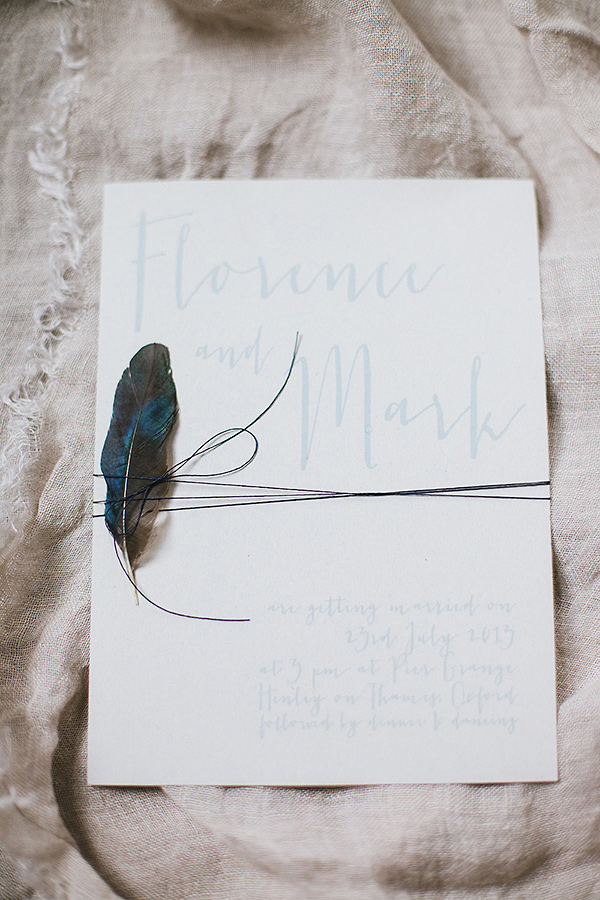 Florence
and
Mark
are getting married on
23rd July 2013
at 3 pm at Pier Grange
Henley on Thames, Oxford
followed by dinner & dancing